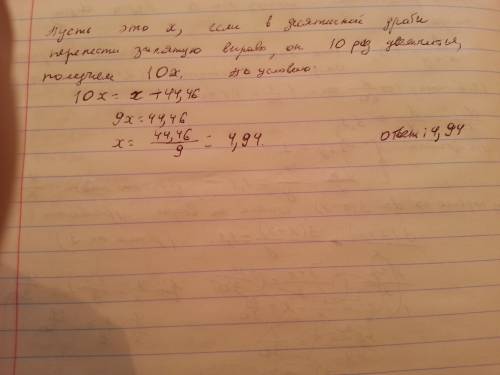 Пусть это x, если в десятичной дроби
перенести запятую вправо, он 10 раз увеличится,
получаем 10x. По условию:
10x = x + 44,46
9x = 44,46
x = 44,46/9 = 4,94.
Ответ: 4,94